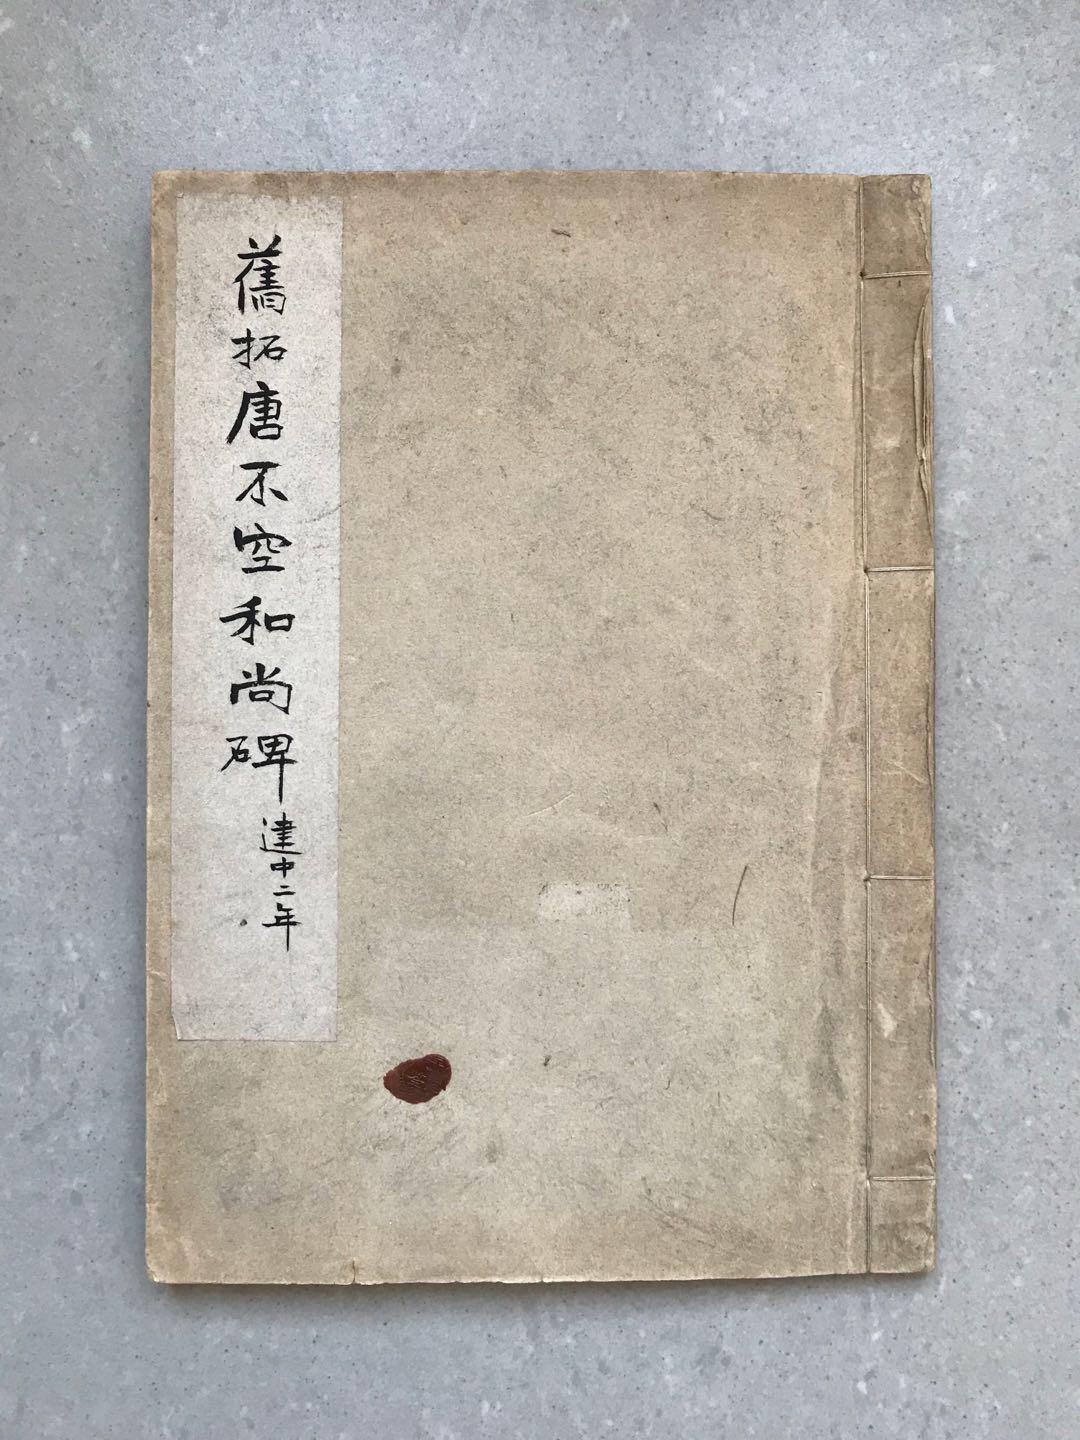 舊拓唐不空和尚碑
建中二年